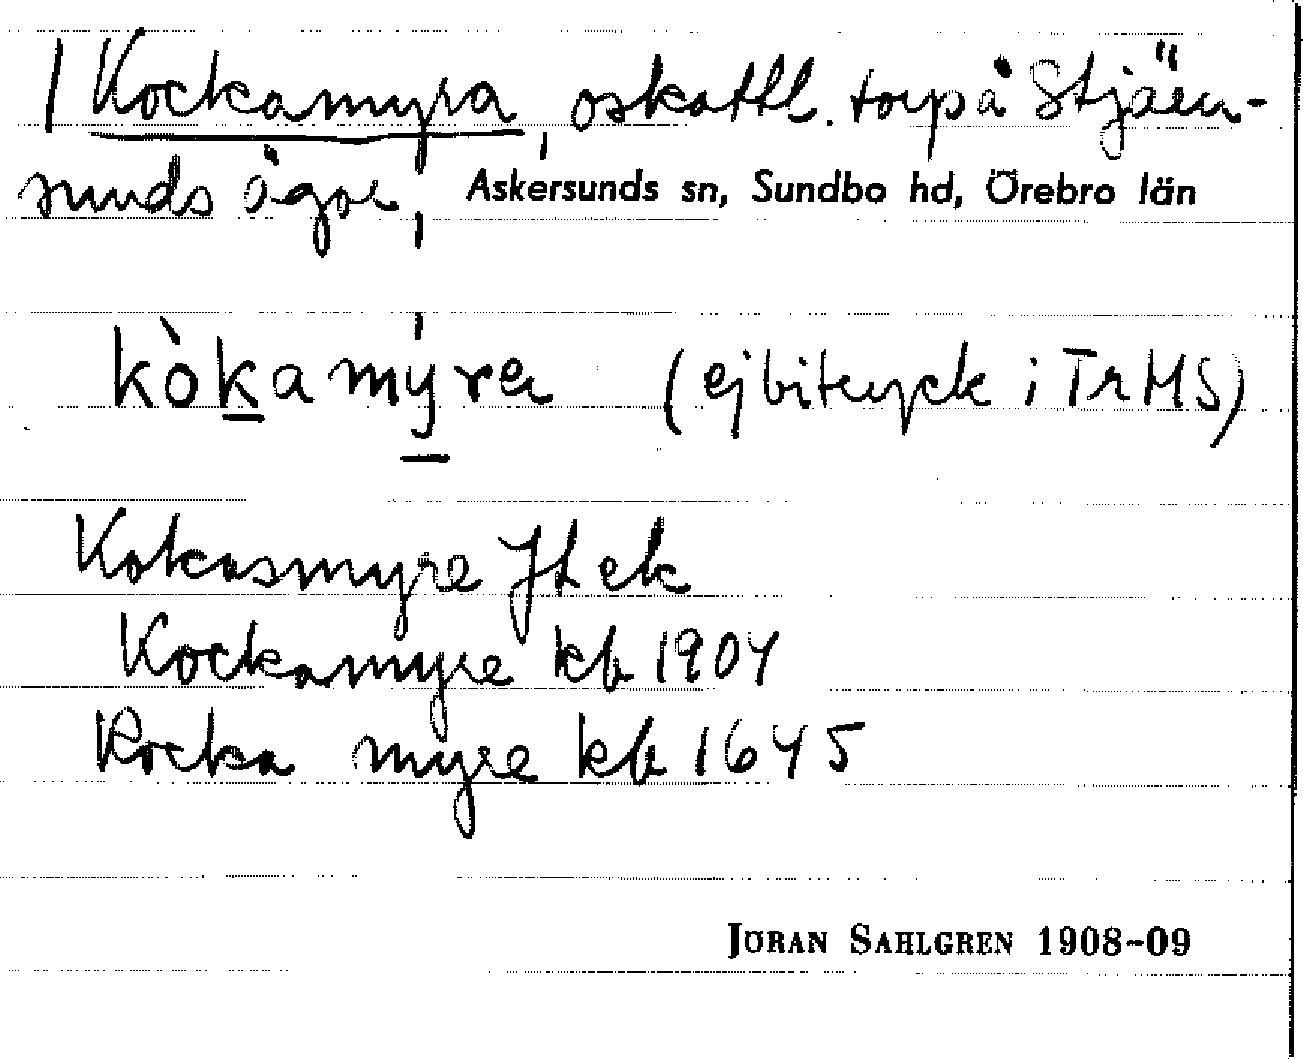 / Kockamyra, oskattl. torp å Stjärn-
sunds ägor, Askersunds sn, Sundbo hd, Örebro län
kòkamýra (ej bitryck i TrMS)
Kokasmyre Jt ek
Kockamyre kb 1904
Kocka myre kb 1645
JÖRAN SAHLGREN 1908-09